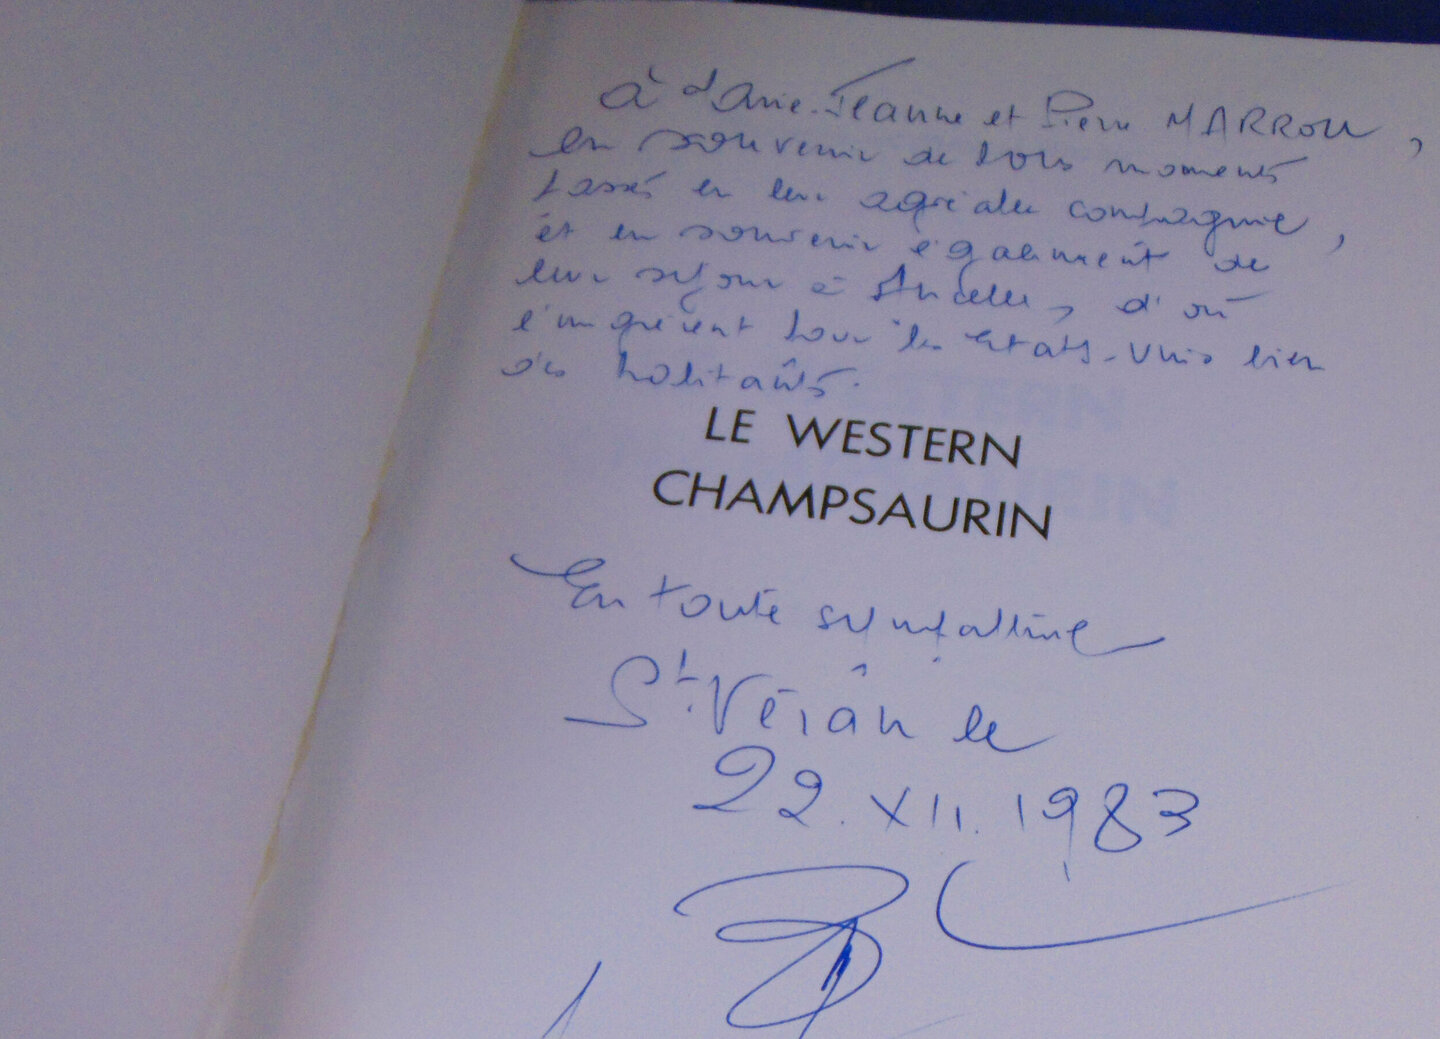 à Marie-Jeanne et Pierre MARROU,
en souvenir de bons moments
passés en leur agréable compagnie,
et en souvenir également de
leur séjour à Ancelle, d'où
émigrèrent pour les Etats-Unis bien
des habitants.
LE WESTERN
CHAMPSAURIN
En toute sympathie
St. Véran le
22.XII.1983